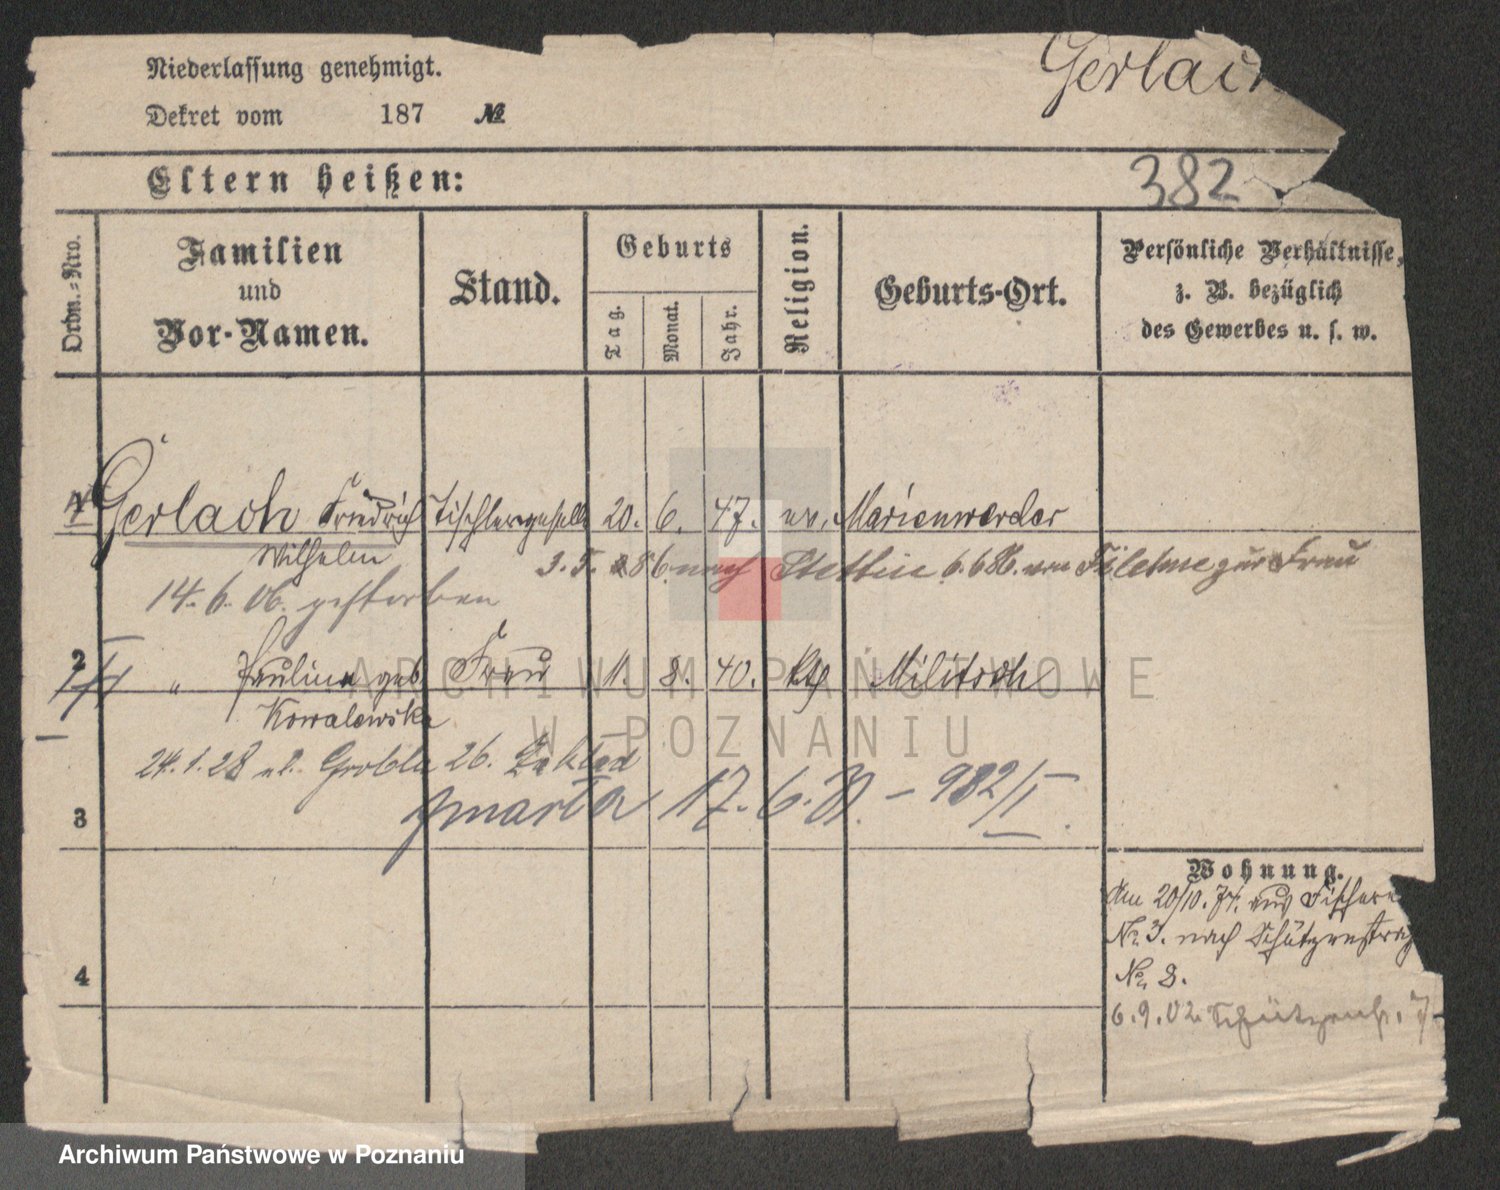 Gerlach
Niederlassung genehmigt.
Dekret vom 187 №
Eltern heißen:
382
Ordn.-Nro.
Familien
und
Vor-Namen.
Stand.
Geburts
Tag.
Monat.
Jahr.
Religion.
Geburts-Ort.
Persönliche Verhältnisse,
z. B. bezüglich
des Gewerbes u. s. w.
1 Gerlach Friedrich Tischlergeselle 20. 6. 47. ev. Marienwerder
Wilhelm
3. 5. 86 nach Stettin 6.6 86. von zur Frau
14. 6. 06. gestorben
2 " Paulina geb. Frau 11. 8. 40. kth Militsch
Kowalewska
24.1.28 Grobla 26. Zakład
zmarła 17. 6. 31. – 982/I
3
4
Wohnung.
Am 20/10. 74. aus Fischerei
No 3. nach Schützenstraße
No 8.
6.9.02. Schützenstr.
ARCHIWUM PAŃSTWOWE
W POZNANIU
Archiwum Państwowe w Poznaniu